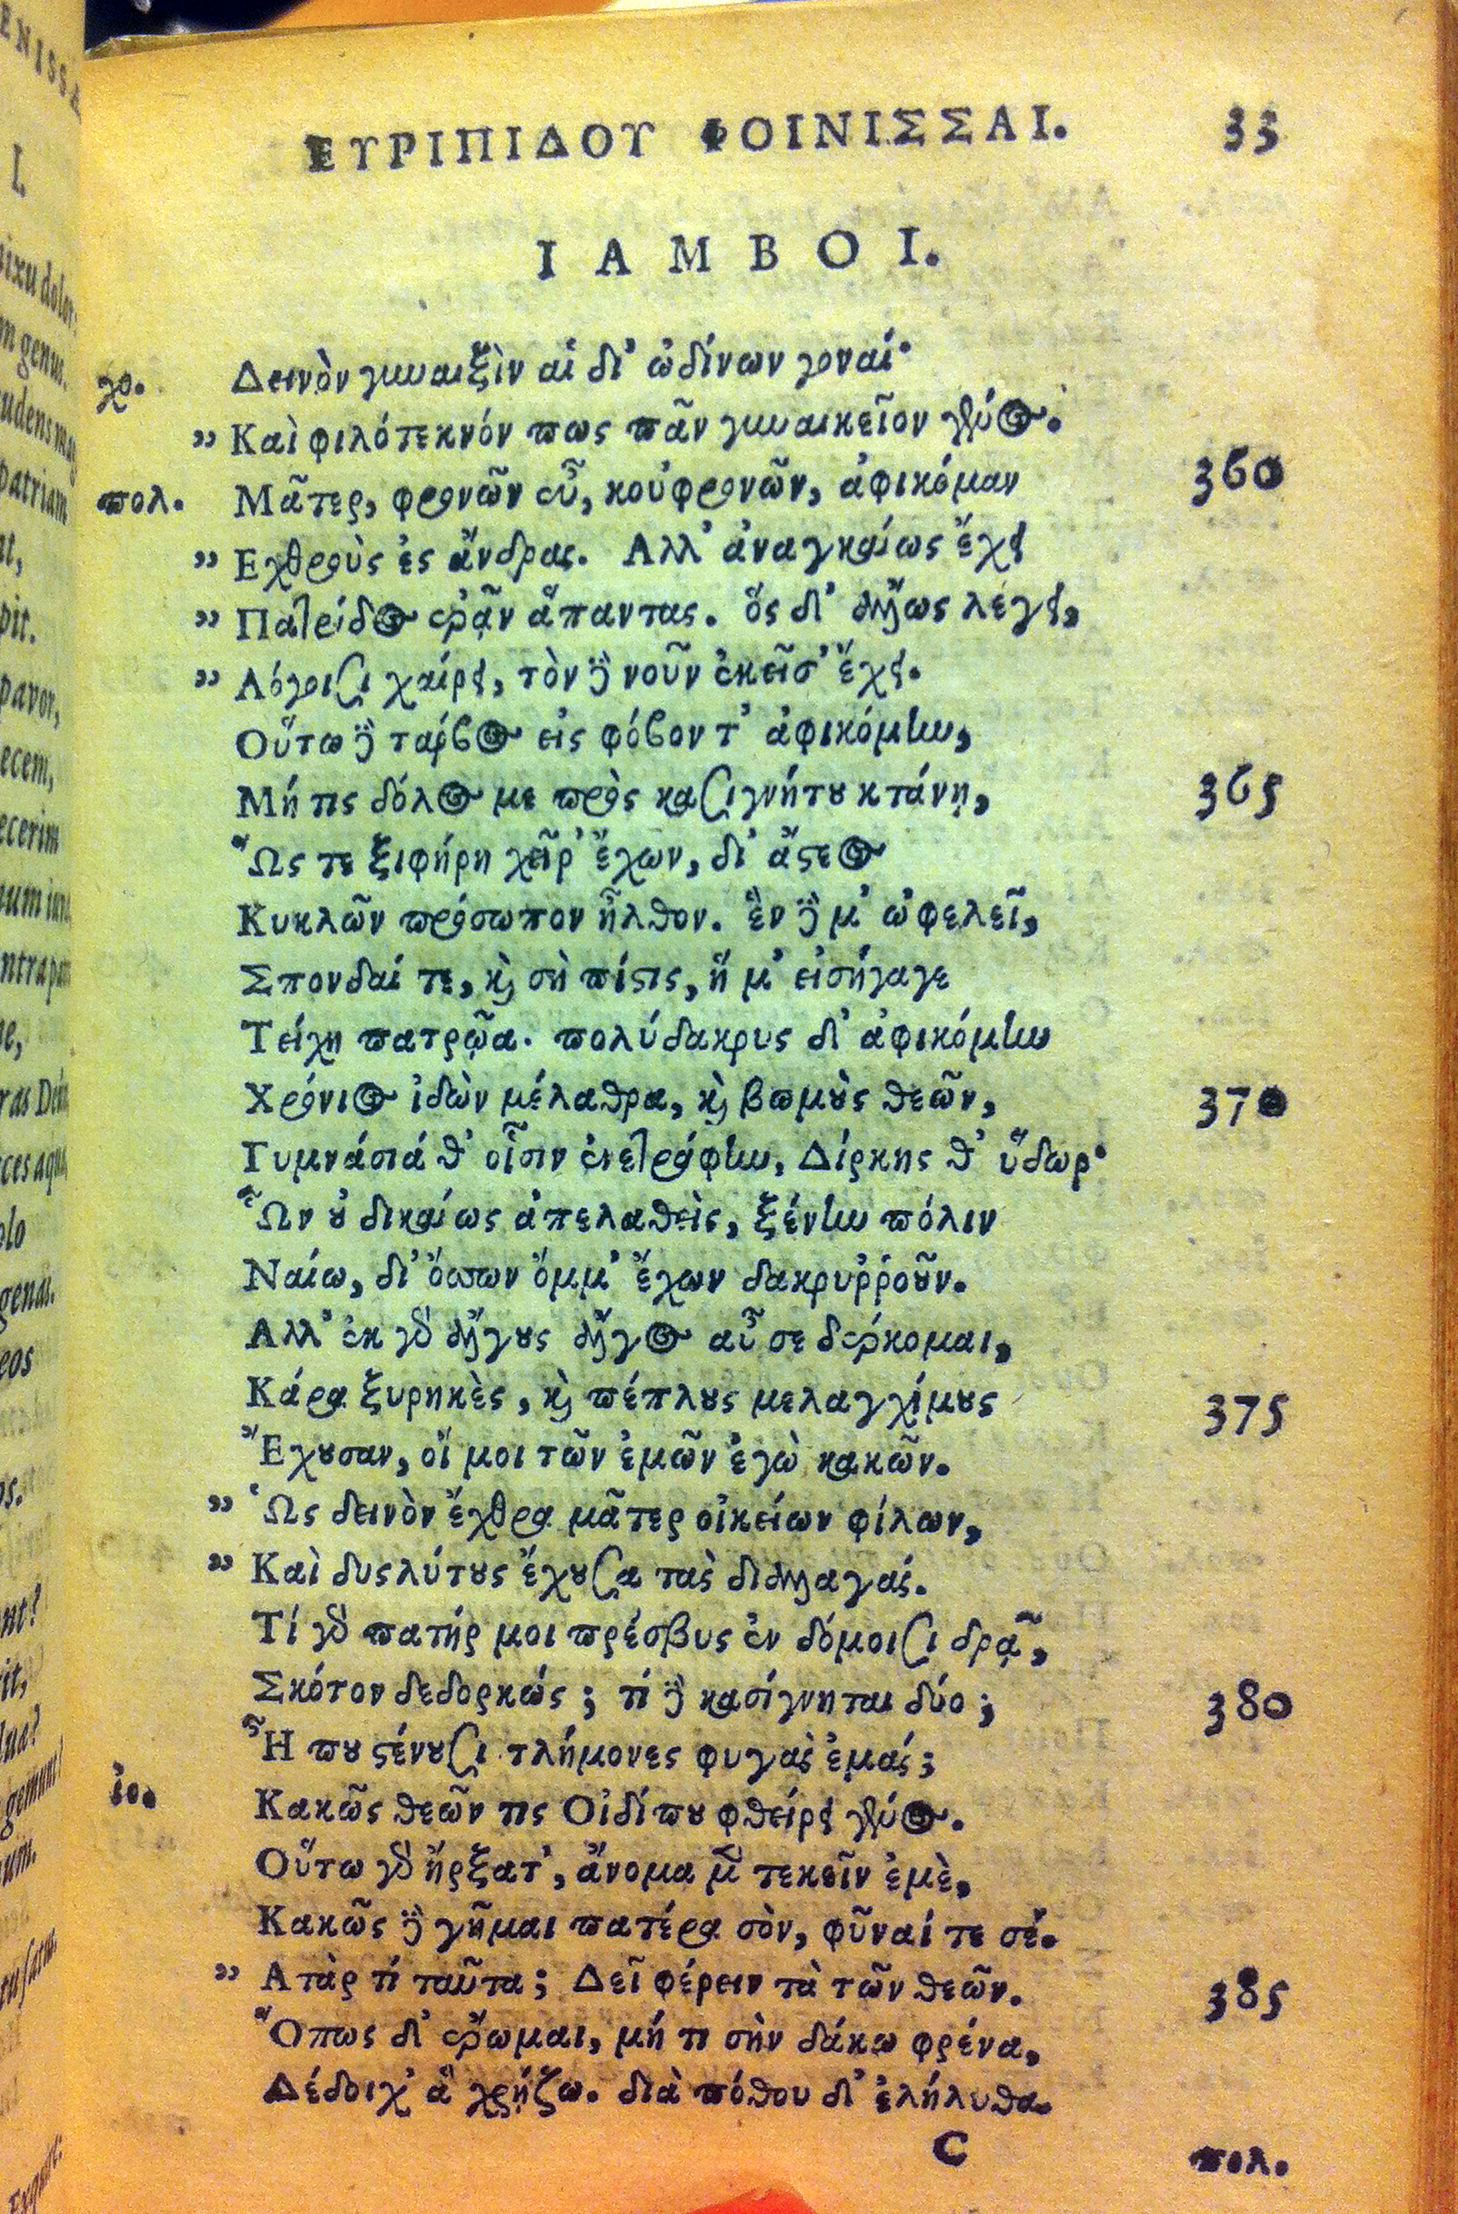 ΕΥΡΙΠΙΔΟΥ ΦΟΙΝΙΣΣΑΙ. 33
ΙΑΜΒΟΙ.
χο. Δεινὸν γυναιξὶν αἱ δι’ ὠδίνων γοναί·
„ Καὶ φιλότεκνόν πως πᾶν γυναικεῖον γένος.
πολ. Μᾶτερ, φρονῶν εὖ, κοὐφρονῶν, ἀφικόμαν 360
„ Εχθροὺς ἐς ἄνδρας. Αλλ’ ἀναγκαίως ἔχει
„ Πατρίδος ἐρᾷν ἅπαντας. ὅς δ’ ἄλλως λέγει,
„ Λόγοισι χαίρει, τὸν δὲ νοῦν ἐκεῖσ’ ἔχει.
Οὕτω δὲ τάρβος εἰς φόβον τ’ ἀφικόμην,
Μή τις δόλος με πρὸς κασιγνήτου κτάνῃ, 365
Ὥς τε ξιφήρη χεῖρ’ ἔχων, δι’ ἄστεος
Κυκλῶν πρόσωπον ἦλθον. ἓν δὲ μ’ ὠφελεῖ,
Σπονδαί τε, καὶ σὴ πίστις, ἥ μ’ εἰσήγαγε
Τείχη πατρῷα· πολύδακρυς δ’ ἀφικόμην
Χρόνιος ἰδὼν μέλαθρα, καὶ βωμοὺς θεῶν, 370
Γυμνάσιά θ’ οἷσιν ἐνετράφην, Δίρκης θ’ ὕδωρ·
Ὧν οὐ δικαίως ἀπελαθεὶς, ξένην πόλιν
Ναίω, δι’ ὅσσων ὄμμ’ ἔχων δακρυῤῥοῦν.
Αλλ’ ἐκ γὰρ ἄλγους ἄλγος αὖ σε δέρκομαι,
Κάρα ξυρηκὲς, καὶ πέπλους μελαγχίμους 375
Ἔχουσαν, οἵ μοι τῶν ἐμῶν ἐγὼ κακῶν.
„ Ὡς δεινὸν ἔχθρα μᾶτερ οἰκείων φίλων,
„ Καὶ δυςλύτους ἔχουσα τὰς διαλλαγάς.
Τί γὰρ πατήρ μοι πρέσβυς ἐν δόμοισι δρᾷ,
Σκότον δεδορκώς; τί δὲ κασίγνηται δύο; 380
Ἦ που στένουσι τλήμονες φυγὰς ἐμάς;
ἰο. Κακῶς θεῶν τις Οἰδίπου φθείρει γένος.
Οὕτω γὰρ ἤρξατ’, ἄνομα μὲν τεκεῖν ἐμὲ,
Κακῶς δὲ γῆμαι πατέρα σὸν, φῦναί τε σέ.
„ Ατὰρ τί ταῦτα; Δεῖ φέρειν τὰ τῶν θεῶν. 385
Ὅπως δ’ ἔρωμαι, μή τι σὴν δάκω φρένα,
Δέδοιχ’ ἃ χρῄζω. διὰ πόθου δ’ ἐλήλυθα.
C πολ.